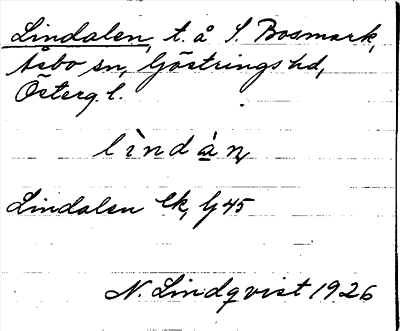 Lindalen, t. å S. Bosmark,
Åsbo sn, Göstrings hd,
Österg. l.
lìndàn
Lindalen Ek, G 45
N. Lindqvist 1926